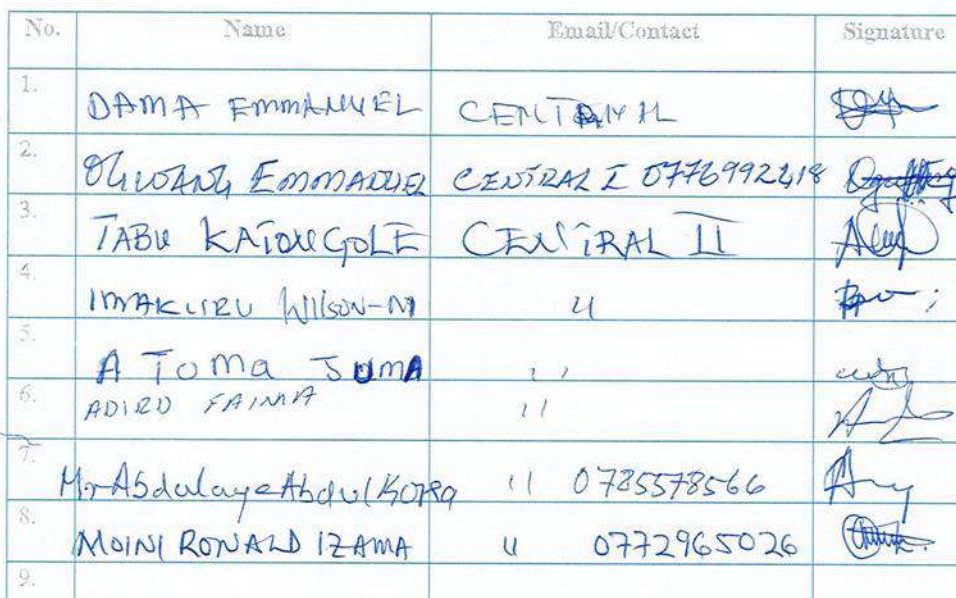 No. Name Email/Contact Signature
1. DAMA EMMANUEL CENTRAL II
2. OGWANG EMMANUEL CENTRAL I 0776992418
3. TABU KATONGOLE CENTRAL II
4. IMAKURU WILSON-M 〃
5. ATOMA JUMA ''
6. ADIRU FAIMA ''
7. Mr Abdulaye Abdul Korea '' 0785578566
8. MOINI RONALD IZAMA 〃 0772965026
9.